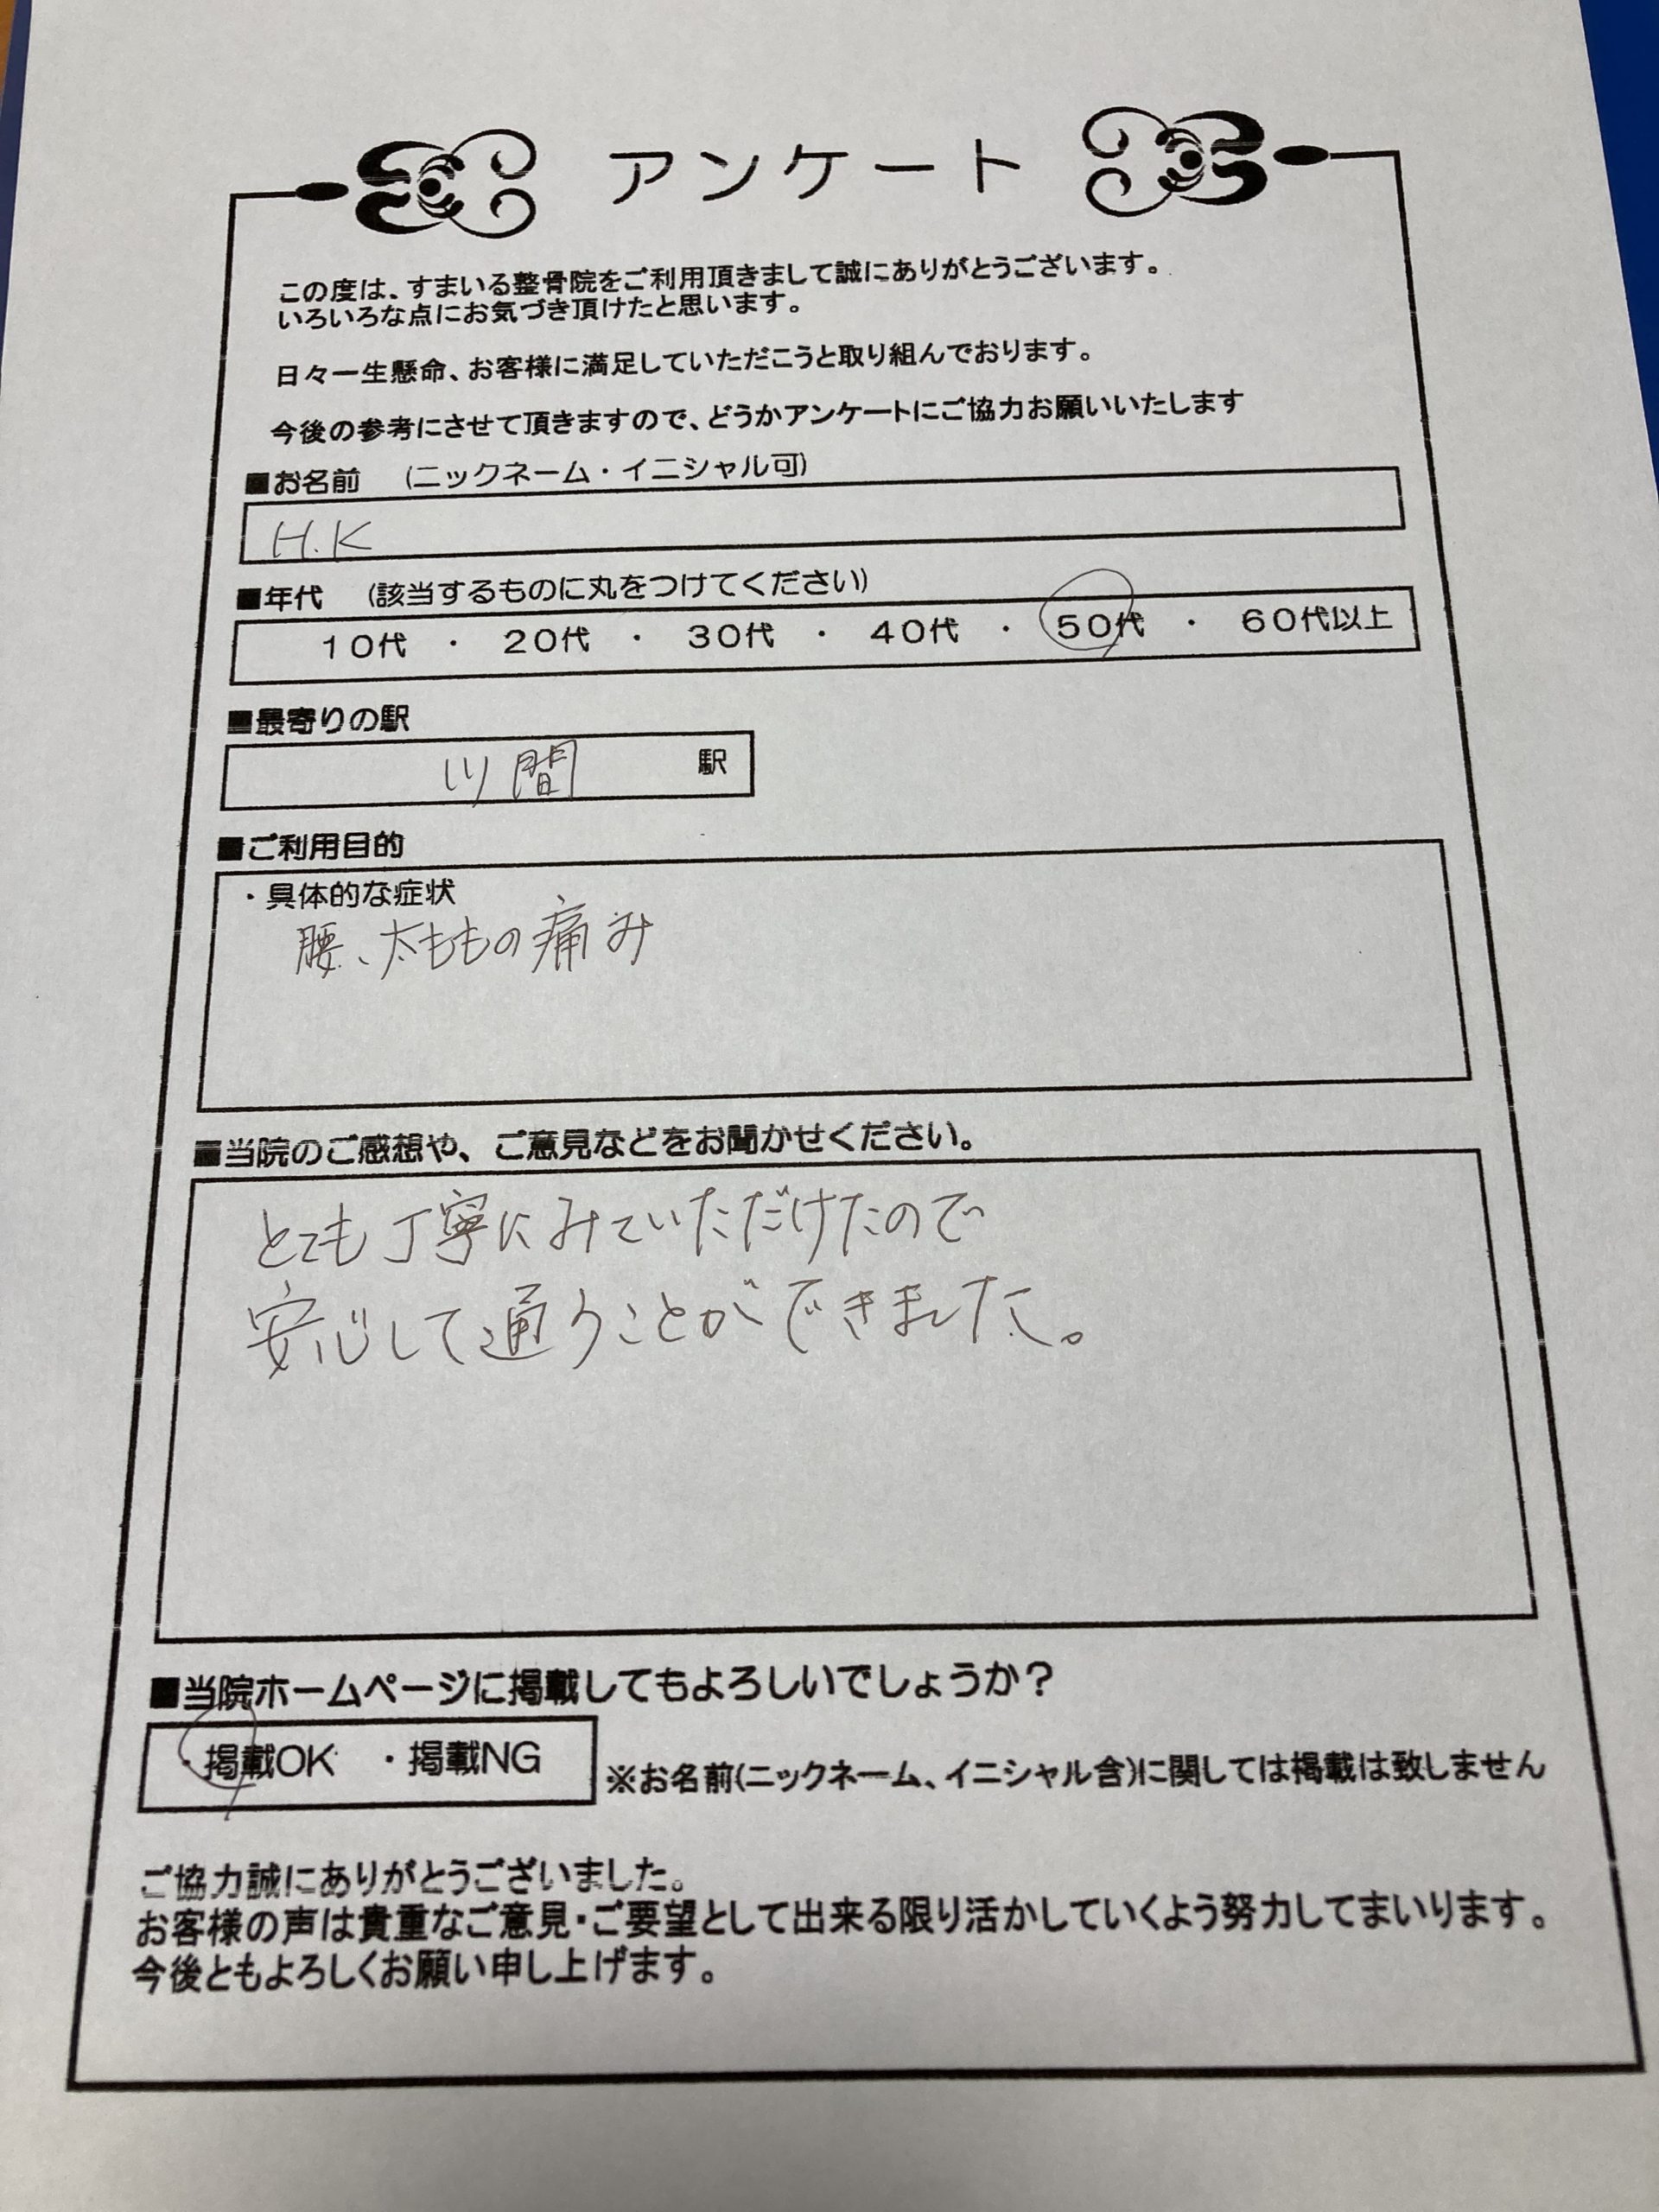 アンケート
この度は、すまいる整骨院をご利用頂きまして誠にありがとうございます。
いろいろな点にお気づき頂けたと思います。
日々一生懸命、お客様に満足していただこうと取り組んでおります。
今後の参考にさせて頂きますので、どうかアンケートにご協力お願いいたします
■お名前　(ニックネーム・イニシャル可)
H.K
■年代　(該当するものに丸をつけてください)
１０代　・　２０代　・　３０代　・　４０代　・　５０代　・　６０代以上
■最寄りの駅
川間　駅
■ご利用目的
・具体的な症状
腰、太ももの痛み
■当院のご感想や、ご意見などをお聞かせください。
とても丁寧にみていただけたので
安心して通うことができました。
■当院ホームページに掲載してもよろしいでしょうか？
・掲載OK　・掲載NG　※お名前(ニックネーム、イニシャル含)に関しては掲載は致しません
ご協力誠にありがとうございました。
お客様の声は貴重なご意見・ご要望として出来る限り活かしていくよう努力してまいります。
今後ともよろしくお願い申し上げます。